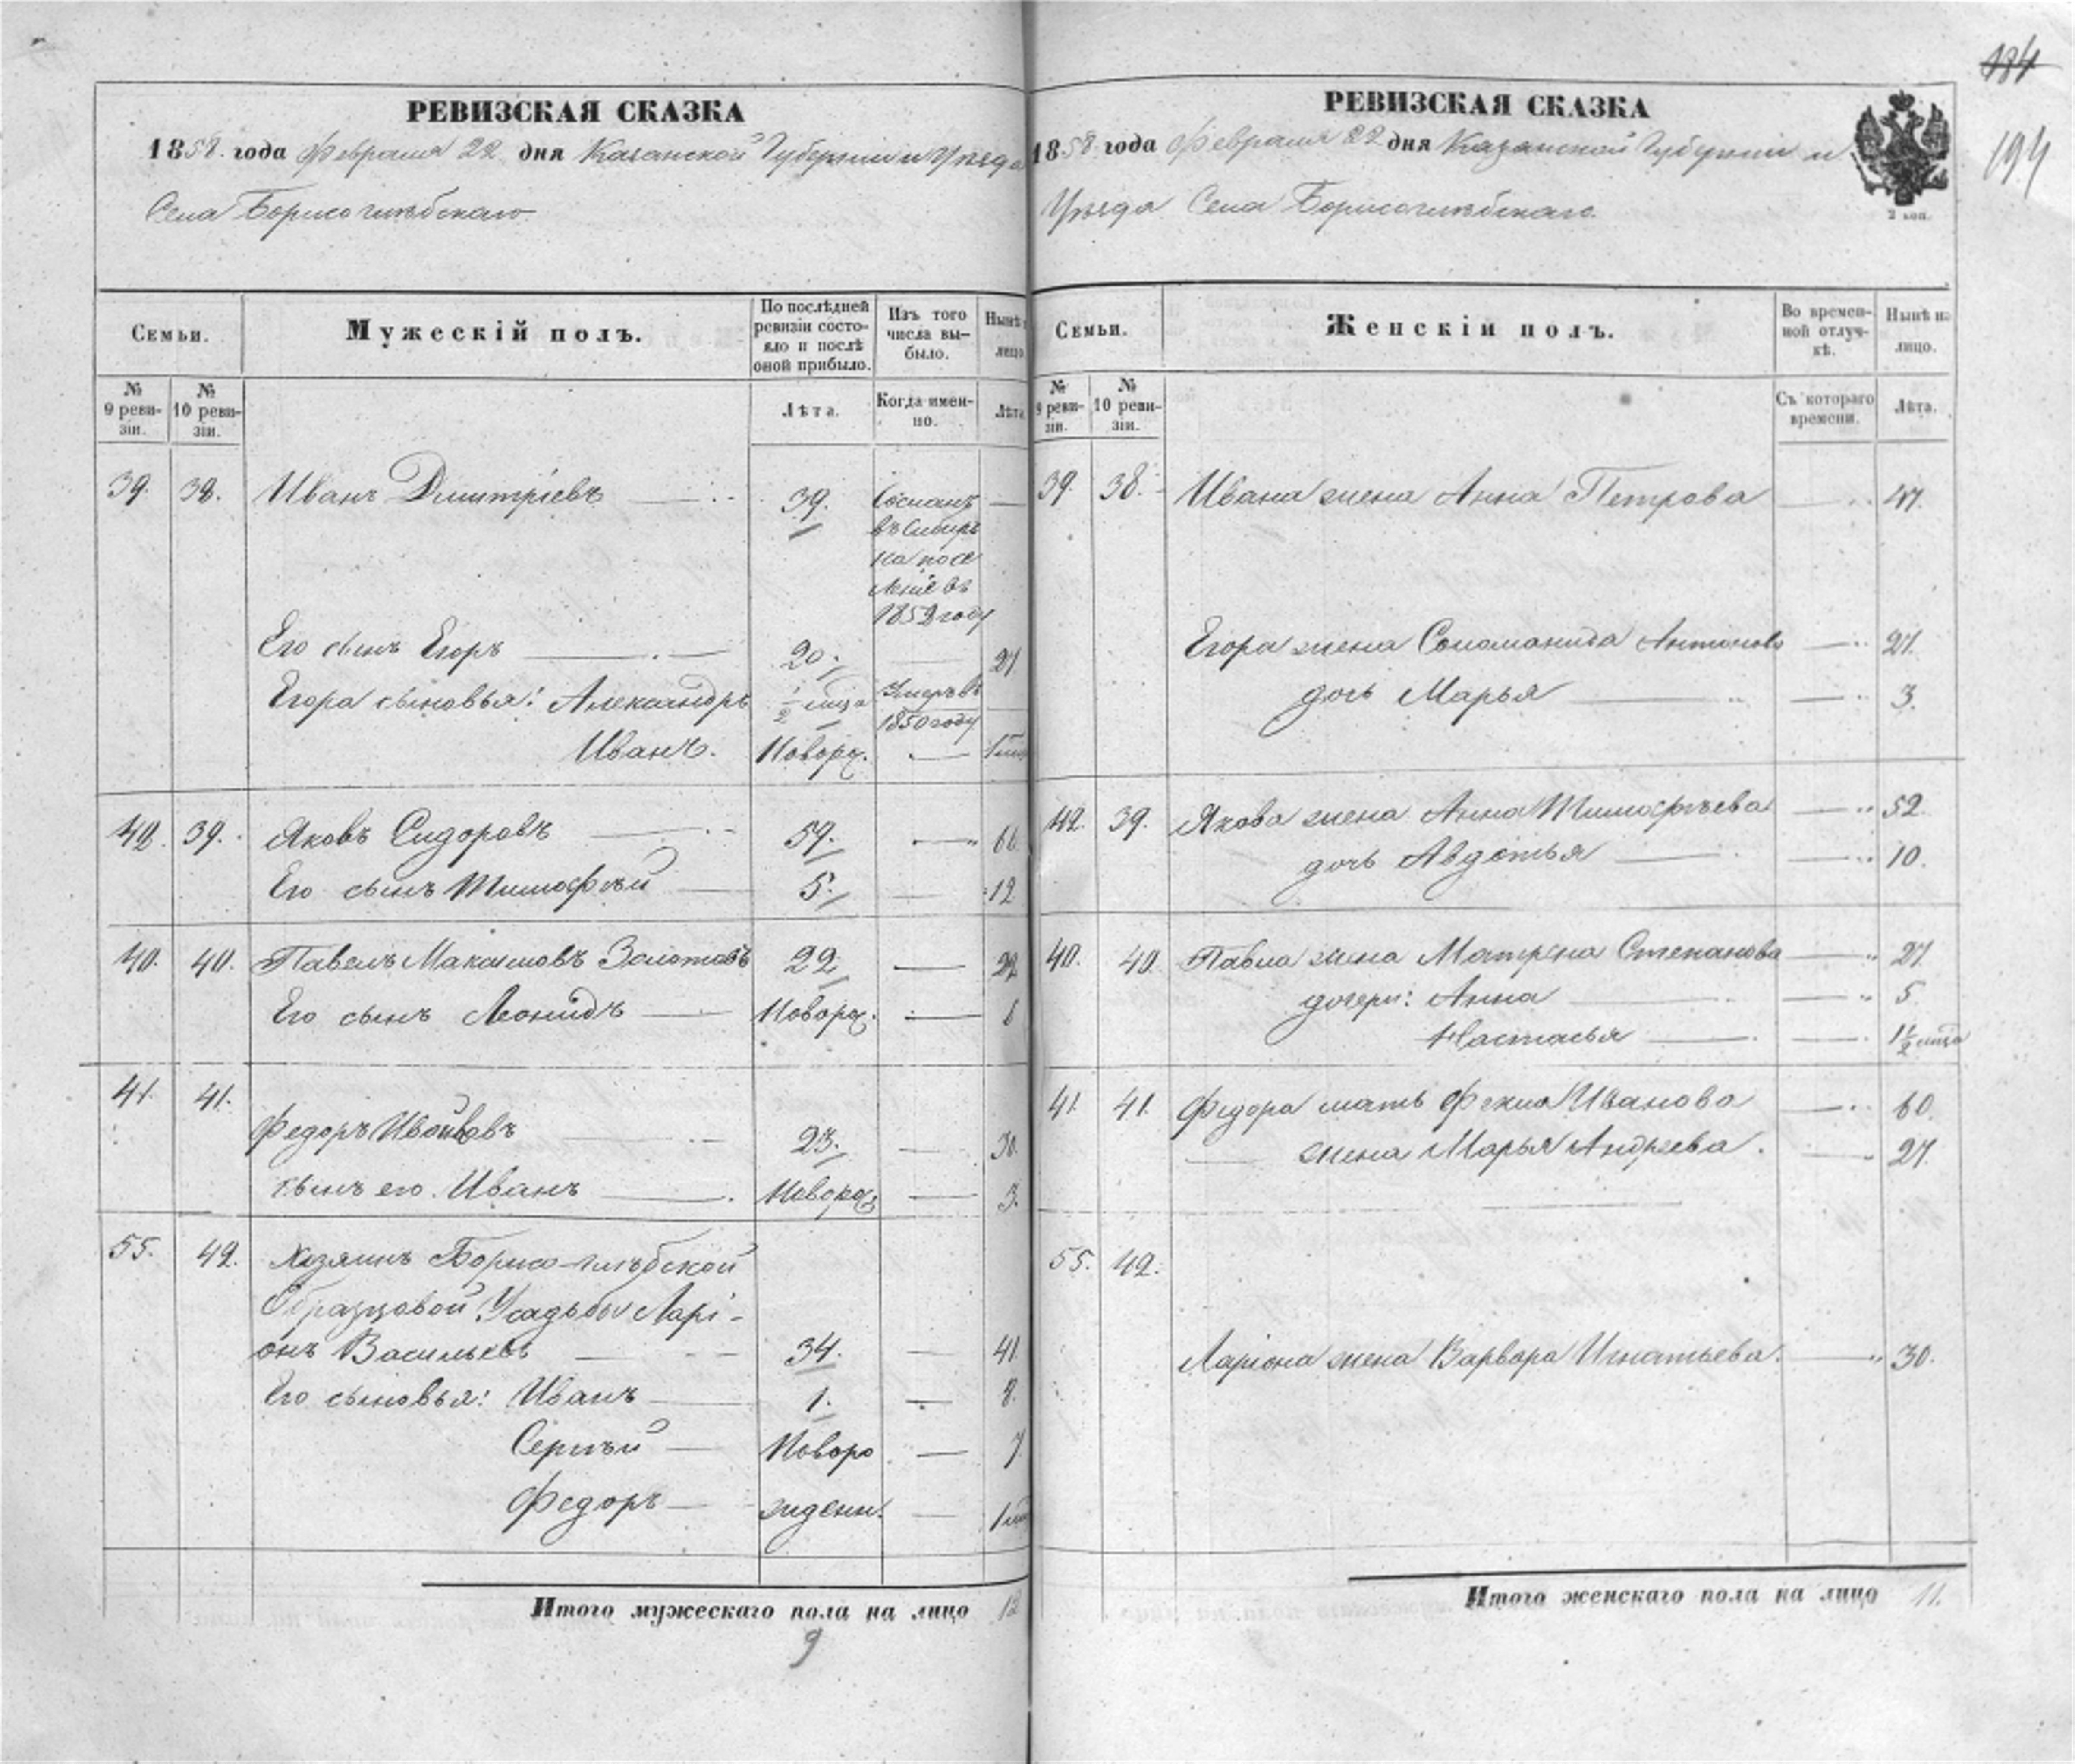 184
194
РЕВИЗСКАЯ СКАЗКА
1858. года Февраля 22 дня Казанской Губерніи и Уѣзда
Села Борисоглѣбскаго
Семьи.
Мужескій полъ.
По послѣдней ревизіи состо-яло и послѣ оной прибыло.
Изъ того числа вы-было.
Нынѣ лицо
№ 9 реви-зіи.
№ 10 реви-зіи.
Лѣта.
Когда имен-но.
Лѣта
39. 38. Иванъ Дмитріевъ 39. Сосланъ —
въ Сибирь
на посе
леніе въ
1852 году
Его сынъ Егоръ 20. — 27
Егора сыновья: Александръ ½ мца Умеръ въ
1850 году
Иванъ. Новорж. —
42. 39. Яковъ Сидоровъ 59. — 66
Его сынъ Тимофѣй 5. — 12
40. 40. Павелъ Максимовъ Золотовъ 22 — 29
Его сынъ Леонидъ Новорж. —
41. 41.
Федоръ Ивановъ 23. — 30.
сынъ его. Иванъ Новорож — 3.
55. 42. Хозяинъ Борисо-глѣбской
Образцовой Усадьбы Ларі-
онъ Васильевъ 34. — 41
Его сыновья: Иванъ 1. — 8.
Сергѣй — Новоро — 7
Федоръ — жденн. —
Итого мужескаго пола на лицо 12
9
РЕВИЗСКАЯ СКАЗКА
1858 года Февраля 22 дня Казанской Губерніи и
Уѣзда Села Борисоглѣбскаго.
2 коп.
Семьи.
Женскій полъ.
Во времен-ной отлуч-кѣ.
Нынѣ на лицо.
№ 9 реви-зіи.
№ 10 реви-зіи.
Съ котораго времени.
Лѣта.
39. 38. Ивана жена Анна Петрова — 47.
Егора жена Соломонида Антонова — 27.
дочь Марья — 3.
42. 39. Якова жена Анна Тимофѣева — 52.
дочь Авдотья — 10.
40. 40 Павла жена Матрена Степанова — 27
дочери: Анна — 5.
Настасья — 1½ мца
41. 41. Федора мать Фекла Иванова — 60.
— жена Марья Андреева. — 27.
55. 42.
Ларіона жена Варвара Игнатьева. — 30.
Итого женскаго пола на лицо 11.